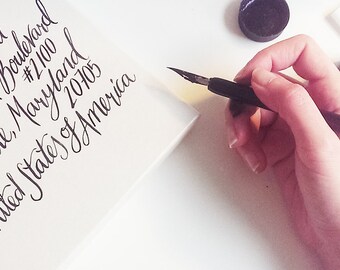 Boulevard
#2100
Maryland
20705
United States of America